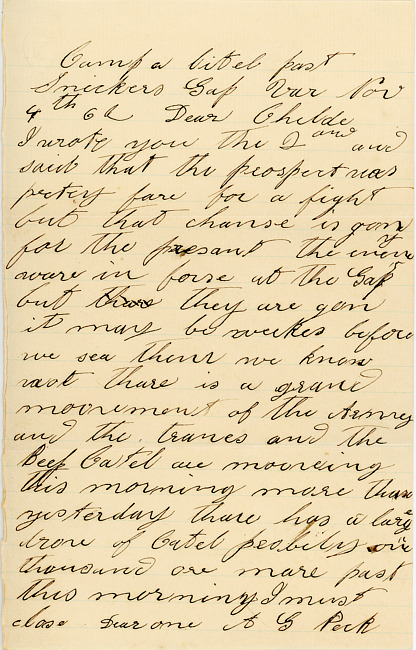 Camp a litel past
Snickers Gap Var Nov
4th 62 Dear Childe
I wrote you the 2 and and
said that the prospert was
pretey fare for a fight
but that chanse is gon
for the presant the eneny
ware in forse at the Gap
but thare they are gon
it may be weekes before
we sea them we know
not thare is a grand
moovement of the Armey
and the tranes and the
Beef Catel are mooveing
this morning more than
yesterday thare has a large
drove of Catel posibily one
thousand ore more past
this morning I must
close Dear one A G Peck